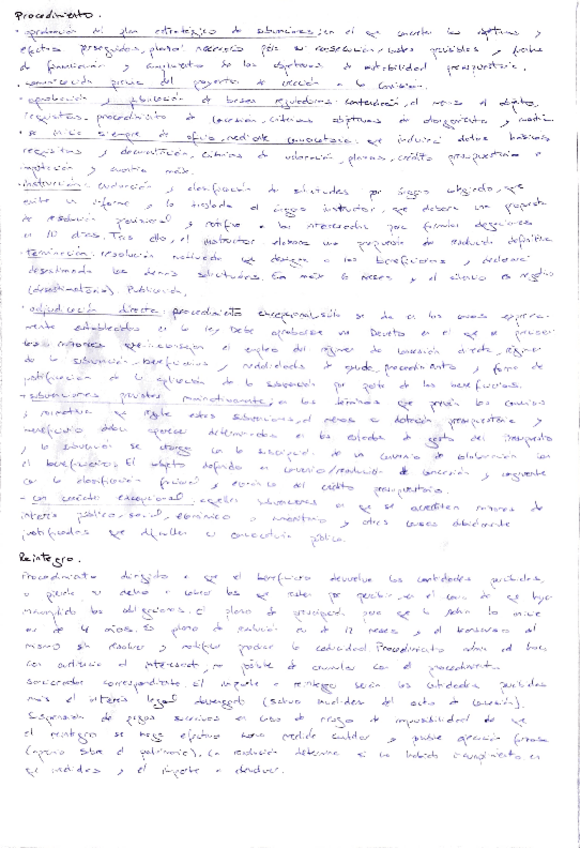 Procedimiento.
· aprobación del plan estratégico de subvenciones, en el que concretar los objetivos y
efectos perseguidos, plazo necesario para su consecución, costes previsibles y fuentes
de financiación y cumplimiento de los objetivos de estabilidad presupuestaria.
· comunicación previa del proyecto de creación a la comisión.
· aprobación y publicación de bases reguladoras. contendrán, al menos el objeto,
requisitos, procedimiento de concesión, criterios objetivos de otorgamiento y cuantía.
· se inicia siempre de oficio, mediante convocatoria que incluirá datos básicos
requisitos y documentación, criterios de valoración, plazos, crédito presupuestario e
y cuantía máx.
· instrucción: evaluación y clasificación de solicitudes por órgano colegiado, que
emite un informe y lo traslada al órgano instructor, que elabora una propuesta
de resolución provisional y notifica a los interesados para formular alegaciones
en 10 días. Tras ello, el instructor elabora una propuesta de resolución definitiva
· Terminación: resolución motivada que designa a los beneficiarios y
desestimando las demás solicitudes. En máx 6 meses y el silencio es negativo
(desestimatorio). Publicación.
· adjudicación directa: procedimiento excepcional, sólo se da en los casos expresa-
mente establecidos en la ley. Debe aprobarse un Decreto en el que se
las razones que aconsejan el empleo del régimen de concesión directa, régimen
de la subvención, beneficiarios y modalidades de ayuda, procedimiento y forma de
justificación de la aplicación de la subvención por parte de los beneficiarios.
- subvenciones previstas nominativamente: en los términos que prevén los convenios
y normativa que regule estas subvenciones, al menos la dotación presupuestaria y
beneficiario deben aparecer determinados en los estados de gasto del presupuesto
y la subvención se otorga con la suscripción de un convenio de colaboración con
el beneficiario. El objeto definido en convenio/resolución de concesión y congruente
con la clasificación funcional y económica del crédito presupuestario.
- con carácter excepcional: aquellas subvenciones en que se acrediten razones de
interés público, social, económico o humanitario y otras causas debidamente
justificadas que dificulten su convocatoria pública.
Reintegro.
Procedimiento dirigido a que el beneficiario devuelva las cantidades percibidas,
o pierda su derecho a cobrar las que estén por percibir, en el caso de que haya
incumplido las obligaciones. El plazo de prescripción para que la Admón lo inicie
es de 4 años. El plazo de resolución es de 12 meses y el transcurso del
mismo sin resolver y notificar produce la caducidad. Procedimiento
con audiencia al interesado, es posible de con el procedimiento
sancionador correspondiente. El importe a reintegrar serán las cantidades percibidas
más el interés legal devengado (salvo nulidades del acto de concesión).
Suspensión de pagos sucesivos en caso de riesgo de imposibilidad de que
el reintegro se haga efectivo como medida cautelar y posible ejecución forzosa
(apremio sobre el patrimonio). La resolución determina si ha habido incumplimiento en
qué medidas y el importe a devolver.